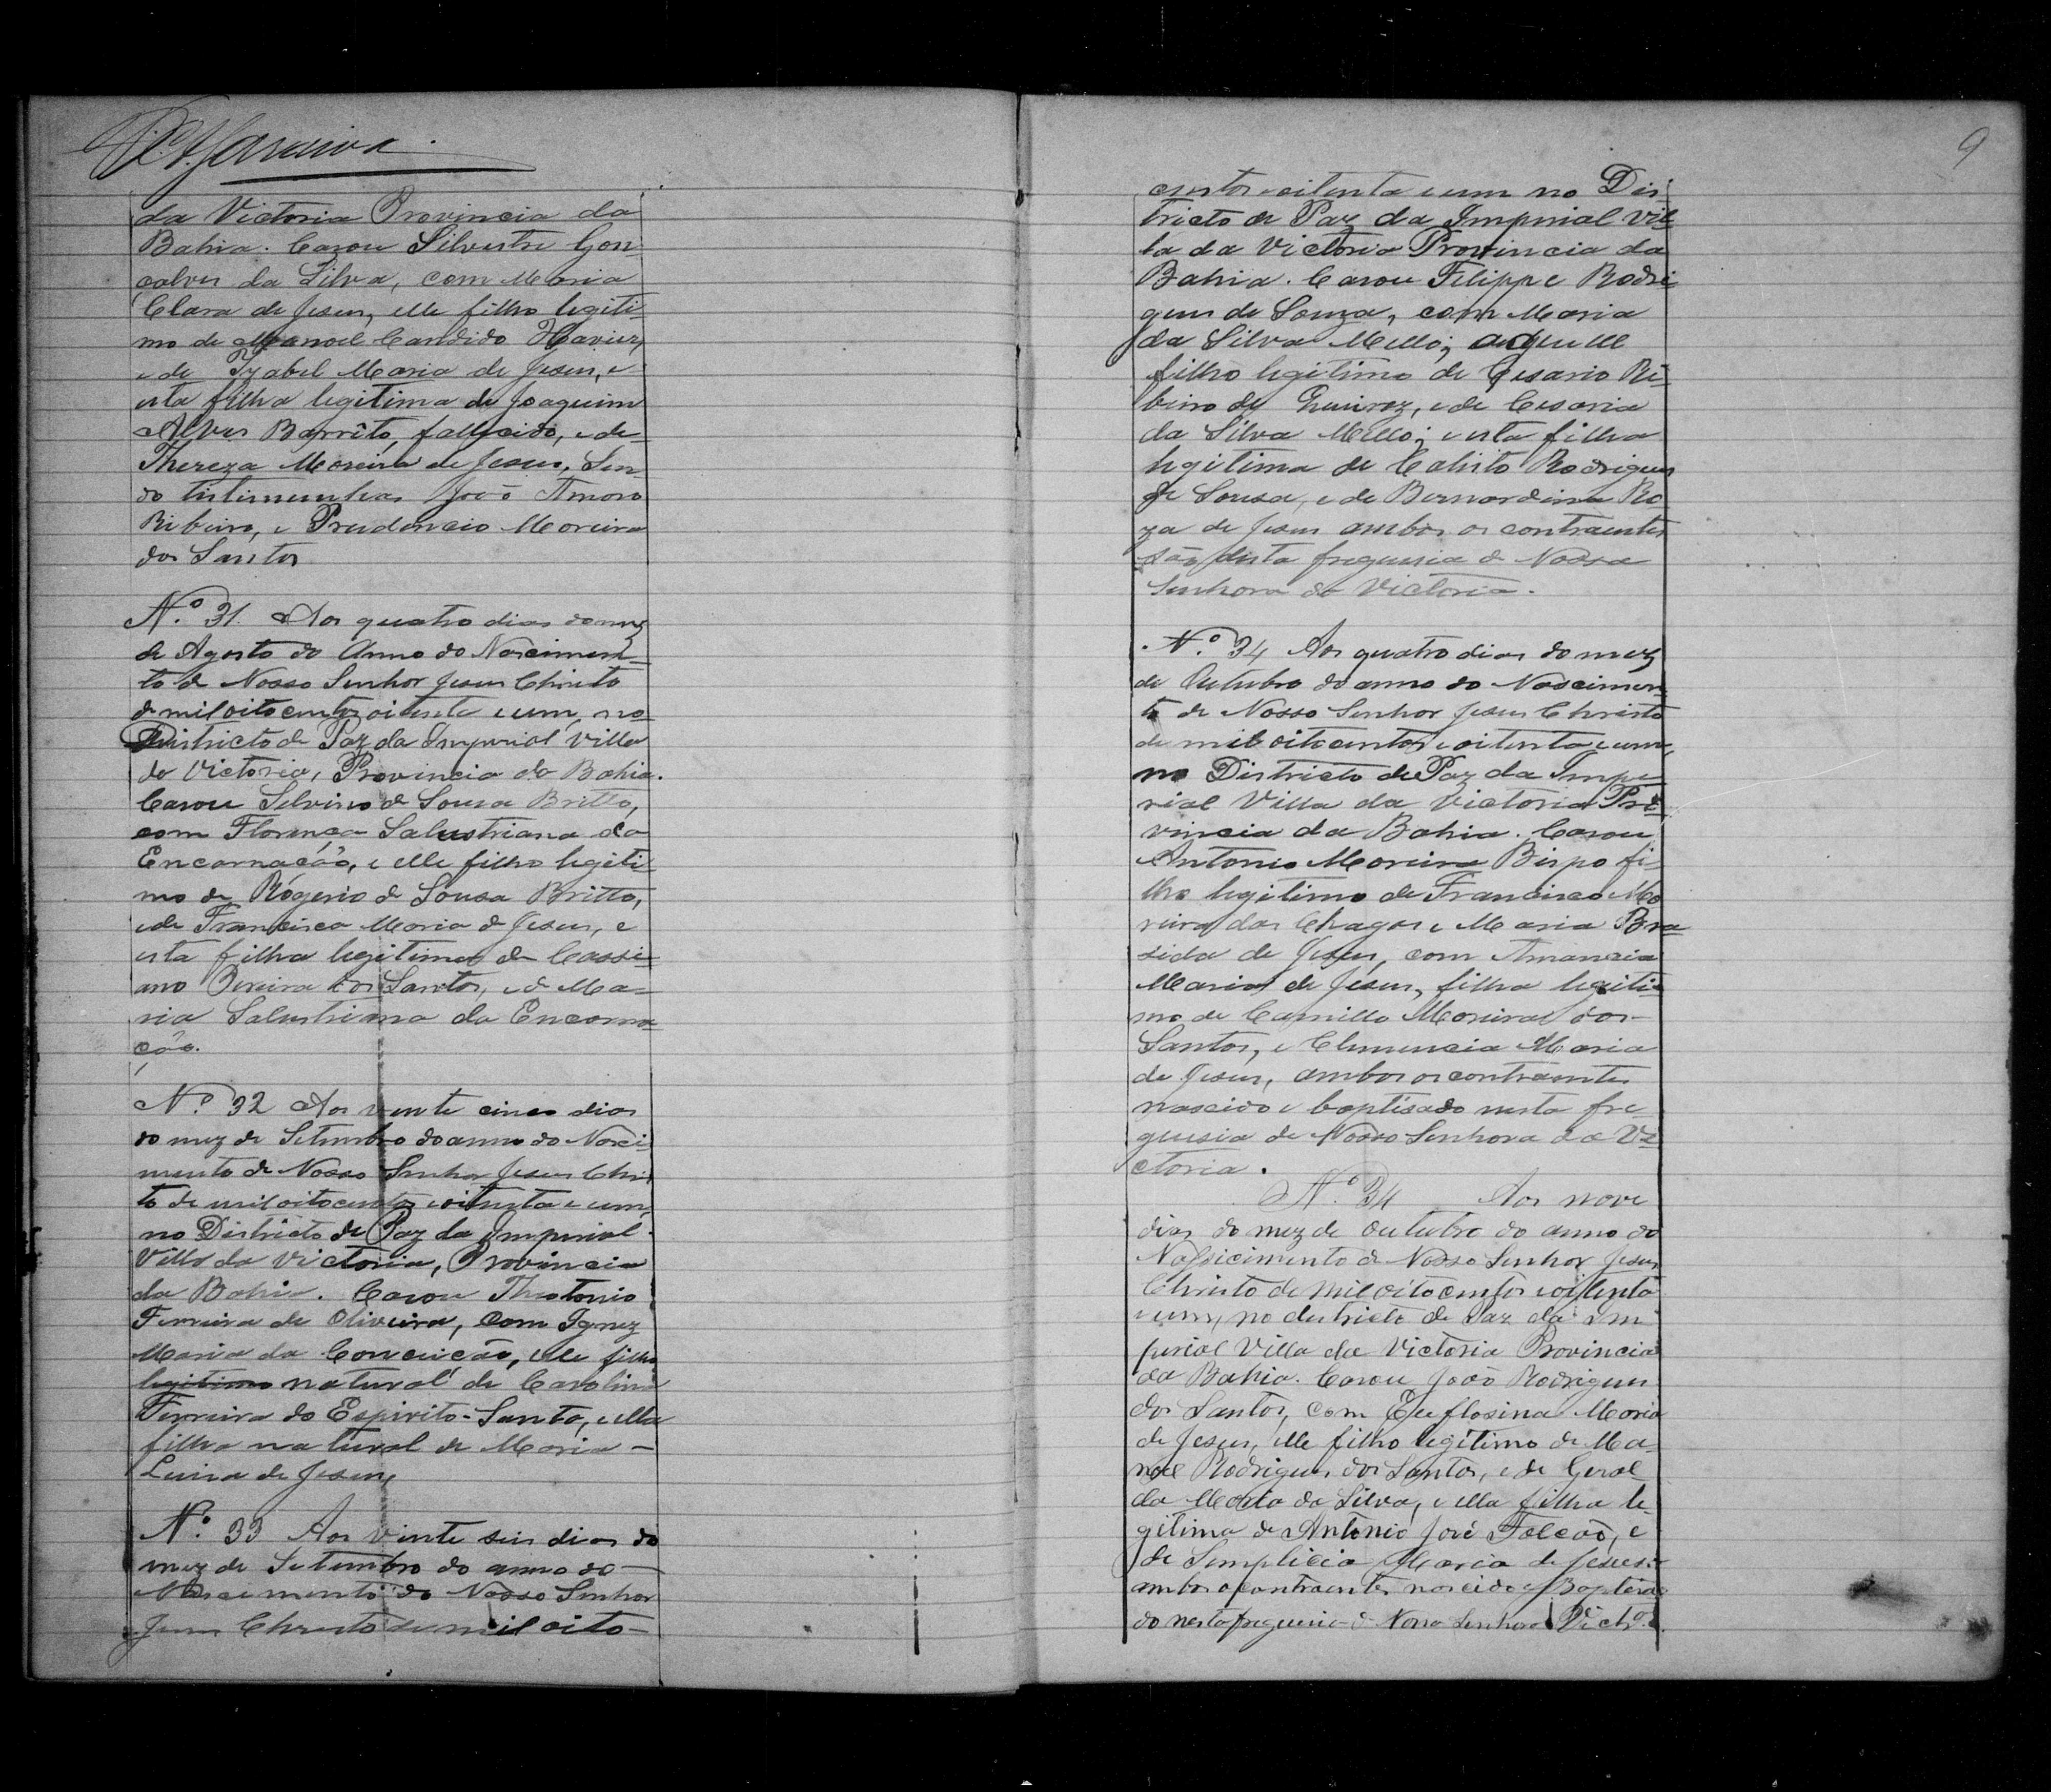 da Victoria Provincia da
Bahia. Casou Silvestre Gon
calves da Silva, com Maria
Clara de Jesus, elle filho legiti-
mo de Manoel Candido Xavier,
e de Izabel Maria de Jesus, e
esta filha legitima de Joaquim
Alves Barrêto, fallecido, e de
Thereza Moreira de Jesus, Sen-
do testimunhas João Amoro
Ribeiro, e Prudencio Moreira
dos Santos
Nº. 31. Aos quatro dias do mez
de Agosto do Anno do Nascimen-
to de Nosso Senhor Jesus Christo
de mil oito centos oitenta e um, no
Districto de Paz da Imperial Villa
da Victoria, Provincia da Bahia.
Casou Selvino de Sousa Britto,
com Florença Salustriana da
Encarnação, e elle filho legiti
mo de Rogerio de Sousa Britto,
e de Francisca Maria de Jesus, e
esta filha legitima de Cassi-
ano Pereira dos Santos, e de Ma-
ria Salustriana da Encarna-
ção.
Nº. 32 Aos vente cinco dias
do mez de Setembro do anno do Nasci-
mento de Nosso Senhor Jesus Chris
to de mil oitocentos e oitenta e um,
no Districto de Paz da Imperial
Villa da Victoria, Provincia
da Bahia. Casou Theotonio
Ferreira de Oliveira, com Ignez
Maria da Conceição, elle filho
legitimo natural de Carolina
Ferreira do Espirito-Santo, e ella
filha natural de Maria -
Luiza de Jesus,
Nº. 33 Aos vinte seis dias do
mez de Setembro do anno do -
Nascemento do Nosso Senhor
Jesus Christo de mil oito-
9
centos e oitenta e um no Dis-
tricto de Paz da Imperial Vil-
la da Victoria Provincia da
Bahia. Casou Filippe Rodri
gues de Souza, com Maria
da Silva Mello; aquelle
filho legitimo de Cesario Ri-
beiro de Queiroz, e de Cesaria
da Silva Mello; e esta filha
legitima de Calisto Rodrigues
de Sousa, e de Bernardina Ro
za de Jesus ambos os contraentes
são desta freguesia de Nossa
Senhora da Victoria.
Nº. 34 Aos quatro dias do mez
de Outubro do anno do Nascimen-
to de Nosso Senhor Jesus Christo
de mil oitocentos e oitenta e um,
no Districto de Paz da Impe
rial Villa da Victoria Pro
vincia da Bahia. Casou
Antonio Moreira Bispo fi-
lho legitimo de Francisco Mo
reira das Chagas e Maria Bra-
sida de Jesus, com Amancia
Maria de Jesus, filha legiti-
ma de Camillo Moreira dos -
Santos, e Clemencia Maria
de Jesus, ambos os contraentes
nascido e baptisado nesta fre
guesia de Nossa Senhora da Vi-
ctoria.
Nº. 34 Aos nove
dias do mez de Outubro do anno do
Nascicimento de Nosso Senhor Jesus
Christo de mil oitocentos e oitenta
e um, no destricto de Paz da Im
perial Villa da Victoria Provincia
da Bahia. Casou João Rodrigues
dos Santos, com Euflosina Maria
de Jesus, elle filho legitimo de Ma-
noel Rodrigues dos Santos, e de Geral
da Maria da Silva, e ella filha le
gitima de Antonio José Falcão, e
de Simplicia Maria de Jesus
ambos o contraentes nascido e Baptisa-
do nesta freguesia de Nossa Senhora Victª.